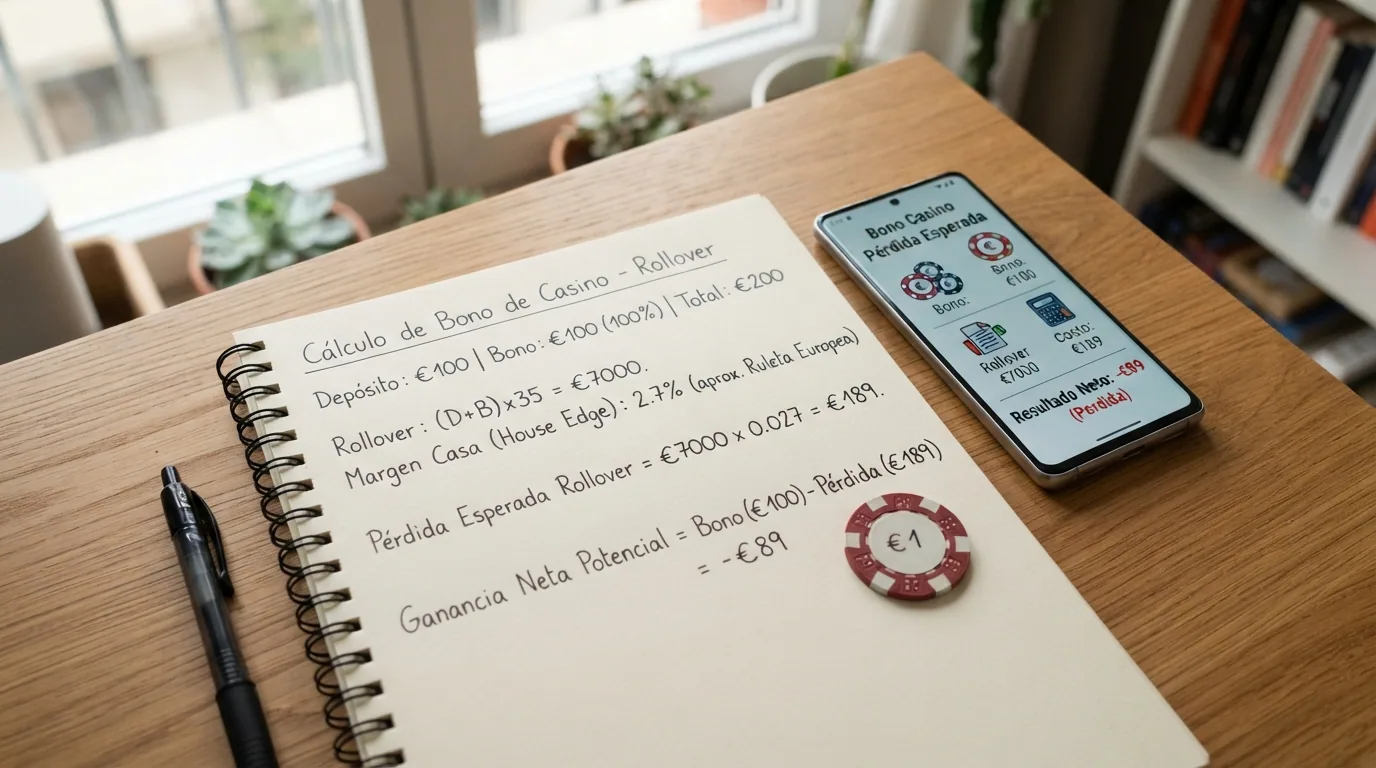 Cálculo de Bono de Casino - Rollover
Depósito: €100 | Bono: €100 (100%) | Total: €200
Rollover: (D+B)x35 = €7000.
Margen Casa (House Edge): 2.7% (aprox. Ruleta Europea)
Pérdida Esperada Rollover = €7000 x 0.027 = €189.
Ganancia Neta Potencial = Bono (€100) - Pérdida (€189)
= -€89
€1
Bono Casino
Pérdida Esperada
€
Bono:
Bono:
€100
Rollover
€7000
Costo:
€189
Resultado Neto: -€89
(Perdida)